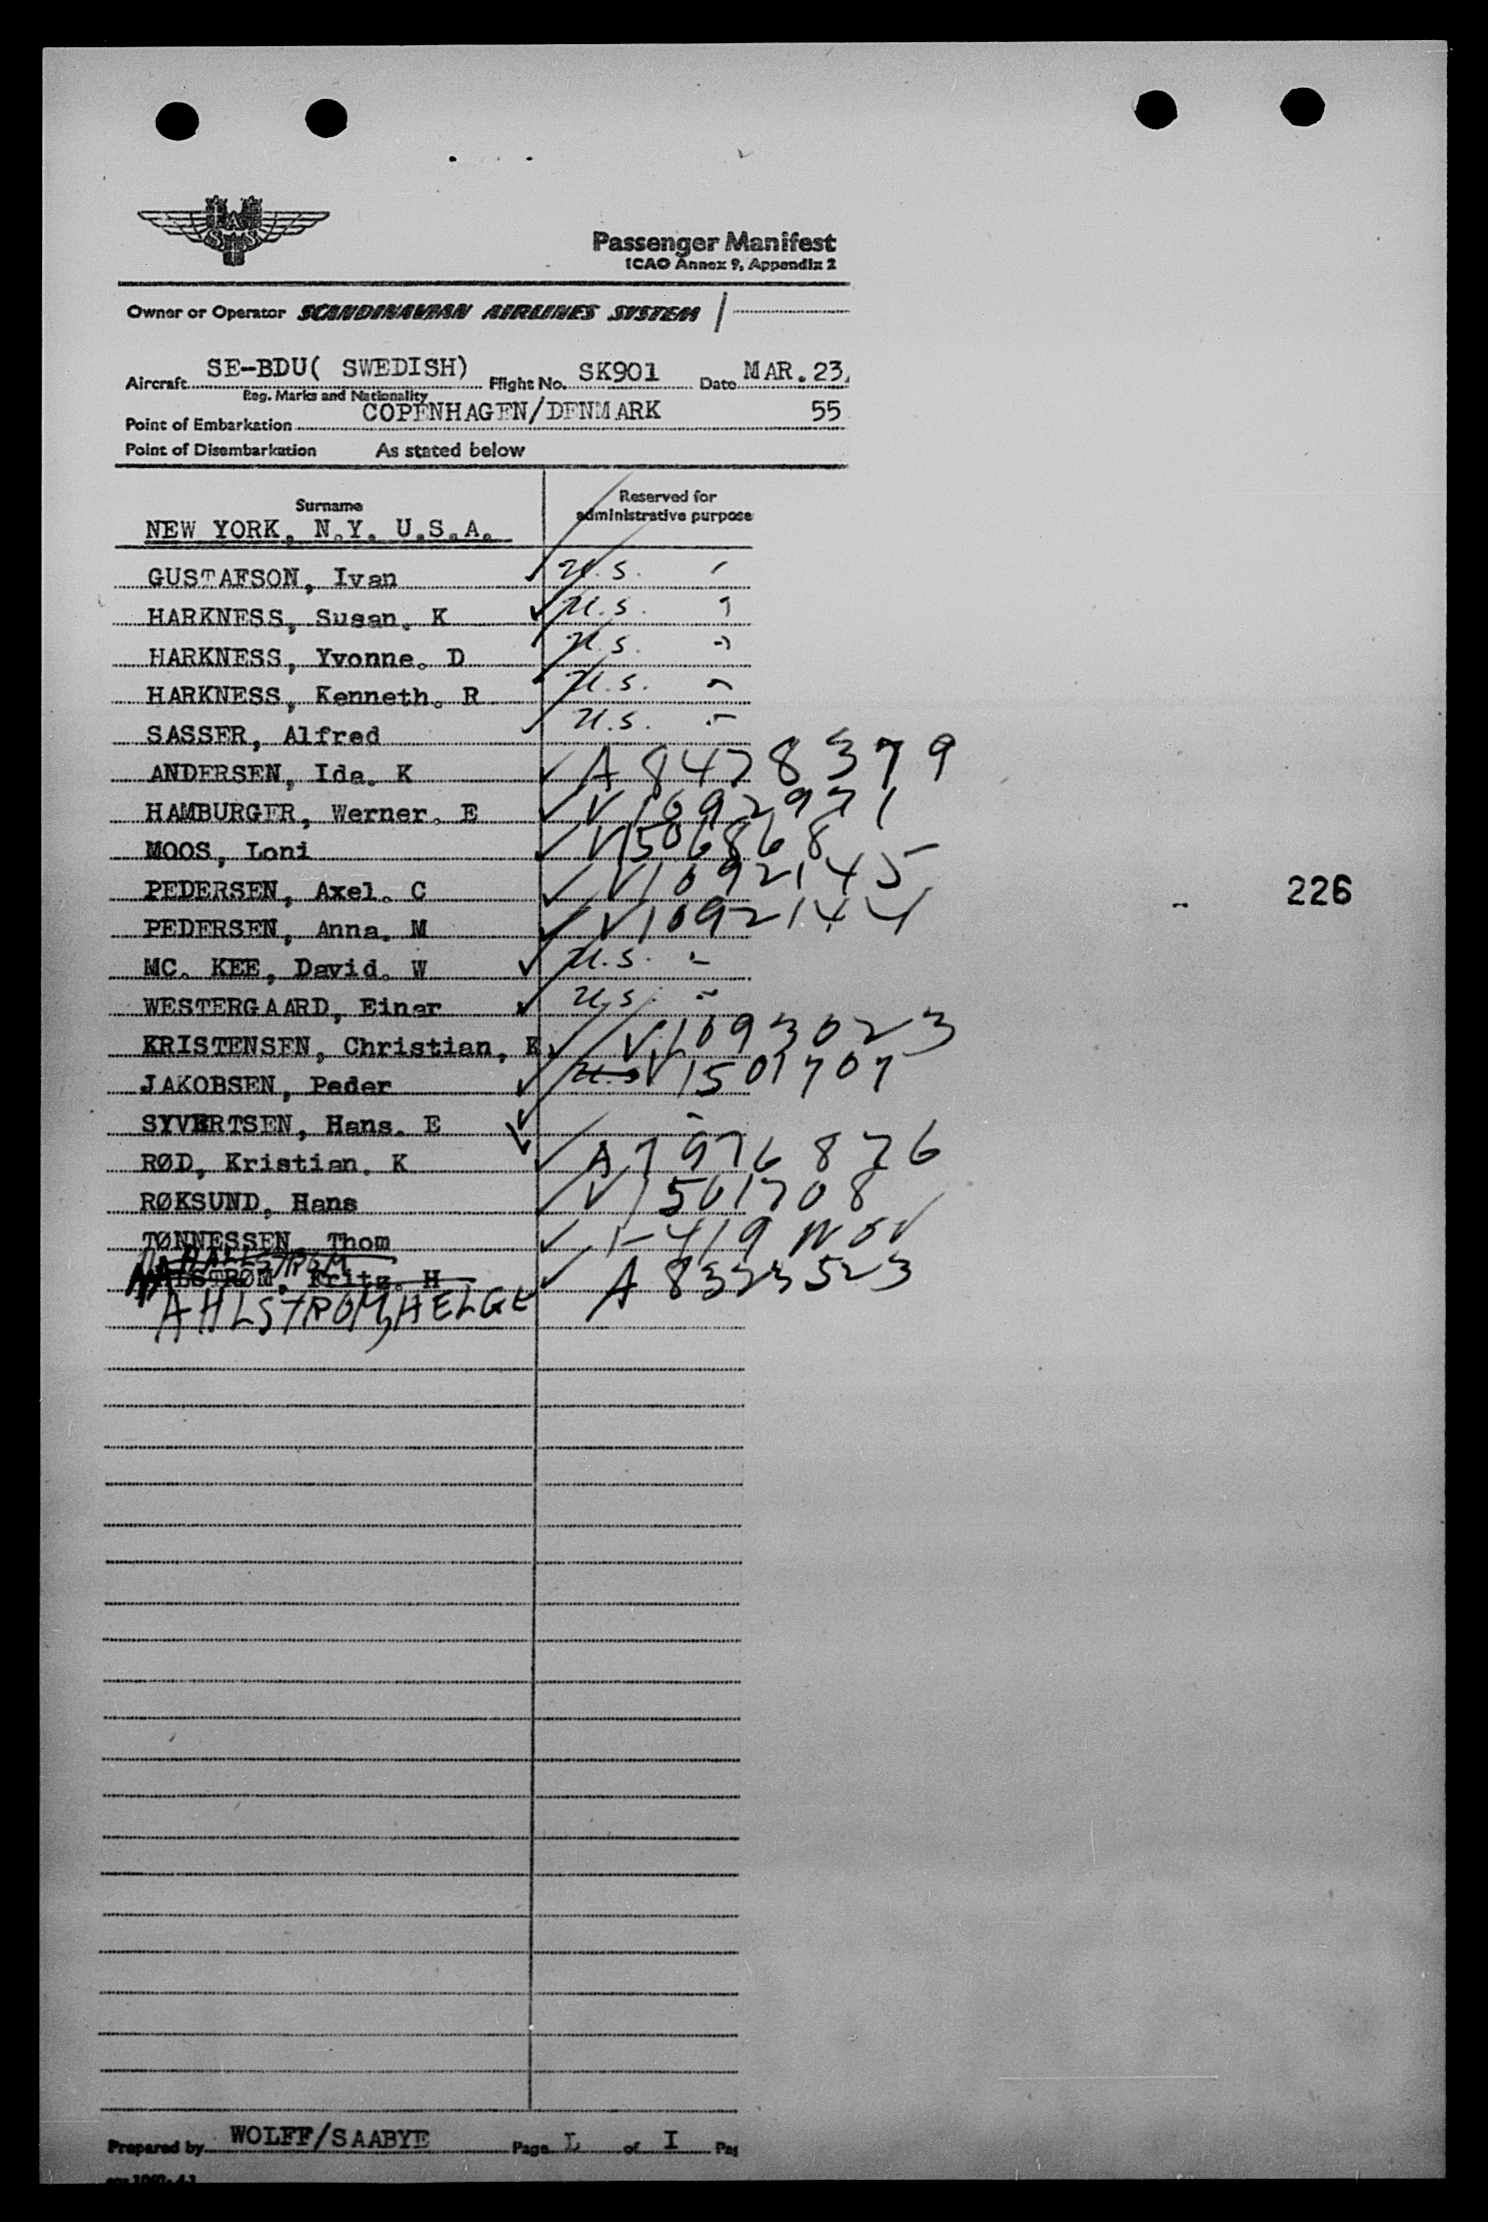 SAS
Passenger Manifest
ICAO Annex 9, Appendix 2
Owner or Operator SCANDINAVIAN AIRLINES SYSTEM
Aircraft SE-BDU( SWEDISH) Flight No. SK901 Date MAR.23,
Reg. Marks and Nationality
Point of Embarkation COPENHAGEN/DENMARK 55
Point of Disembarkation As stated below
Surname Reserved for
administrative purpose
NEW YORK, N.Y. U.S.A.
GUSTAFSON, Ivan U.S.
HARKNESS, Susan. K U.S.
HARKNESS, Yvonne. D U.S.
HARKNESS, Kenneth. R U.S.
SASSER, Alfred U.S.
ANDERSEN, Ida. K A 8478379
HAMBURGER, Werner. E V 1092971
MOOS, Loni V 1506868
PEDERSEN, Axel. C V 1092145
226
PEDERSEN, Anna. M V 1092144
MC. KEE, David. W U.S.
WESTERGAARD, Einar U.S.
KRISTENSEN, Christian, E V 1093023
JAKOBSEN, Peder U.S. V 1501707
SYVERTSEN, Hans. E
RØD, Kristian. K A 7976876
RØKSUND, Hans V 1501708
TØNNESSEN, Thom I-419 NOV
Fritz. H A 8323523
AHLSTROM, HELGE
Prepared by WOLFF/SAABYE Page I of I